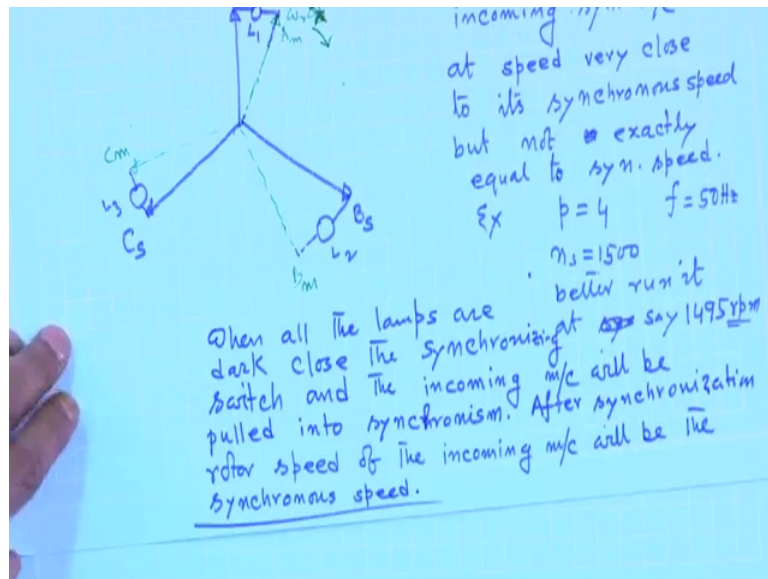 L1
Am
incoming syn m/c
at speed very close
to its synchronous speed
but not exactly
equal to syn. speed.
Ex p = 4 f = 50Hz
ns = 1500
better run it
at say 1495 rpm
Cm
L3
Cs
Bs
L2
Bm
When all the lamps are
dark close the synchronizing
switch and the incoming m/c will be
pulled into synchronism. After synchronization
rotor speed of the incoming m/c will be the
synchronous speed.